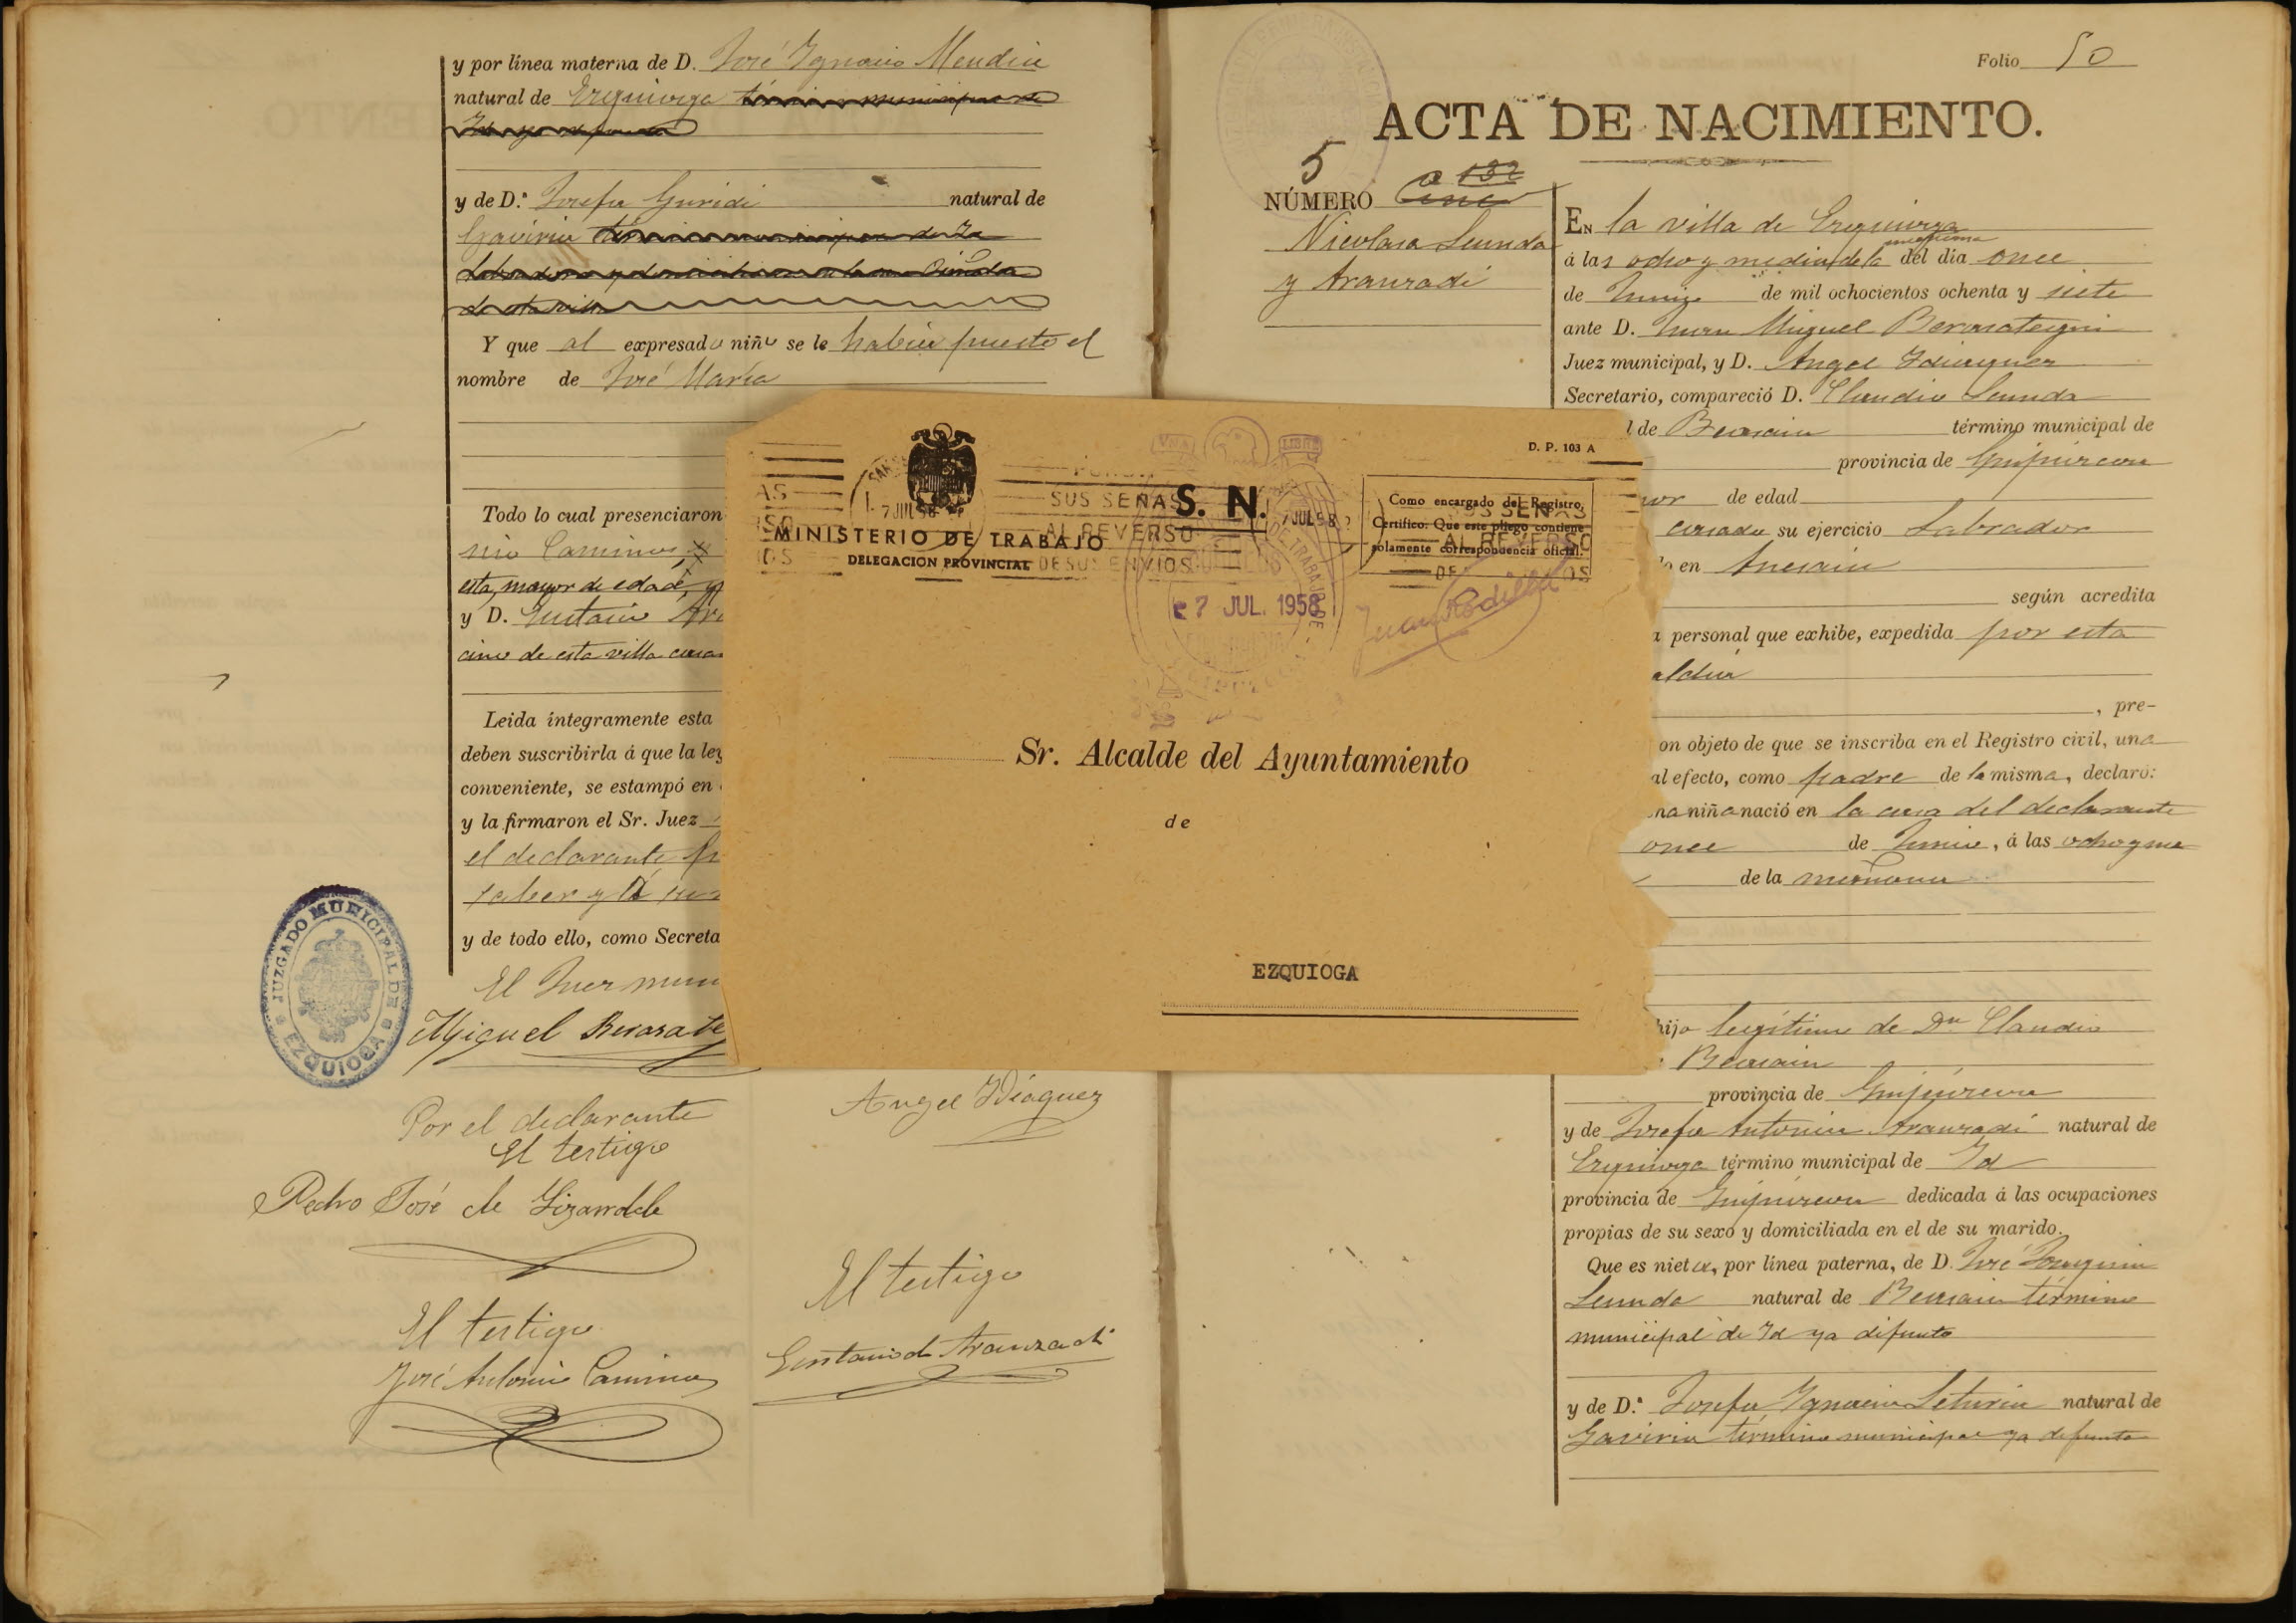 y por línea materna de D. José Ygnacio Mendia
natural de Ezquioga
y de D.ª Josefa Guridi natural de
Gaviria
Y que al expresado niño se le había puesto el
nombre de José María
Todo lo cual presenciaron
nio Caminos
esta, mayor de edad,
y D. Eustasio
cino de esta villa
Leida íntegramente esta
deben suscribirla á que la ley
conveniente, se estampó en
y la firmaron el Sr. Juez
el declarante
saber y
y de todo ello, como Secreta
El Juez muni
Miguel Berasate
JUZGADO MUNICIPAL DE
EZQUIOGA
Angel Ydiaquez
Por el declarante
El testigo
Pedro José de Lizarralde
El testigo
José Antonio Caminos
El testigo
Eustasio de Aranzadi
D. P. 103 A
VNA
LIBRE
S. N.
SUS SEÑAS
AL REVERSO
DE SUS ENVIOS
MINISTERIO DE TRABAJO
DELEGACION PROVINCIAL
7 JUL 58
27 JUL. 1958
Como encargado del Registro,
Certifico: Que este pliego contiene
solamente correspondencia oficial.
Juan Rodilla
Sr. Alcalde del Ayuntamiento
de
EZQUIOGA
Folio 50
ACTA DE NACIMIENTO.
5
132
NÚMERO Cinco
Nicolasa Leunda
y Aranzadi
En la villa de Ezquioga
á las ocho y media de la mañana del dia once
de Junio de mil ochocientos ochenta y siete
ante D. Juan Miguel Berasategui
Juez municipal, y D. Angel Ydiaquez
Secretario, compareció D. Claudio Leunda
l de Beasain término municipal de
provincia de Guipúzcoa
de edad
casado su ejercicio Labrador
en Anesain
según acredita
personal que exhibe, expedida por esta
aldia
, pre-
on objeto de que se inscriba en el Registro civil, una
al efecto, como padre de la misma, declaró:
na niña nació en la casa del declarante
once de Junio, á las ocho y me
de la mañana
hija legítima de Dn Claudio
Beasain
provincia de Guipúzcoa
y de Josefa Antonia Aranzadi natural de
Ezquioga término municipal de Id
provincia de Guipúzcoa dedicada á las ocupaciones
propias de su sexo y domiciliada en el de su marido.
Que es nieta, por línea paterna, de D. José Joaquin
Leunda natural de Beasain término
municipal de Id ya difunto
y de D.ª Josefa Ygnacia Leturia natural de
Gaviria término municipal ya difunta